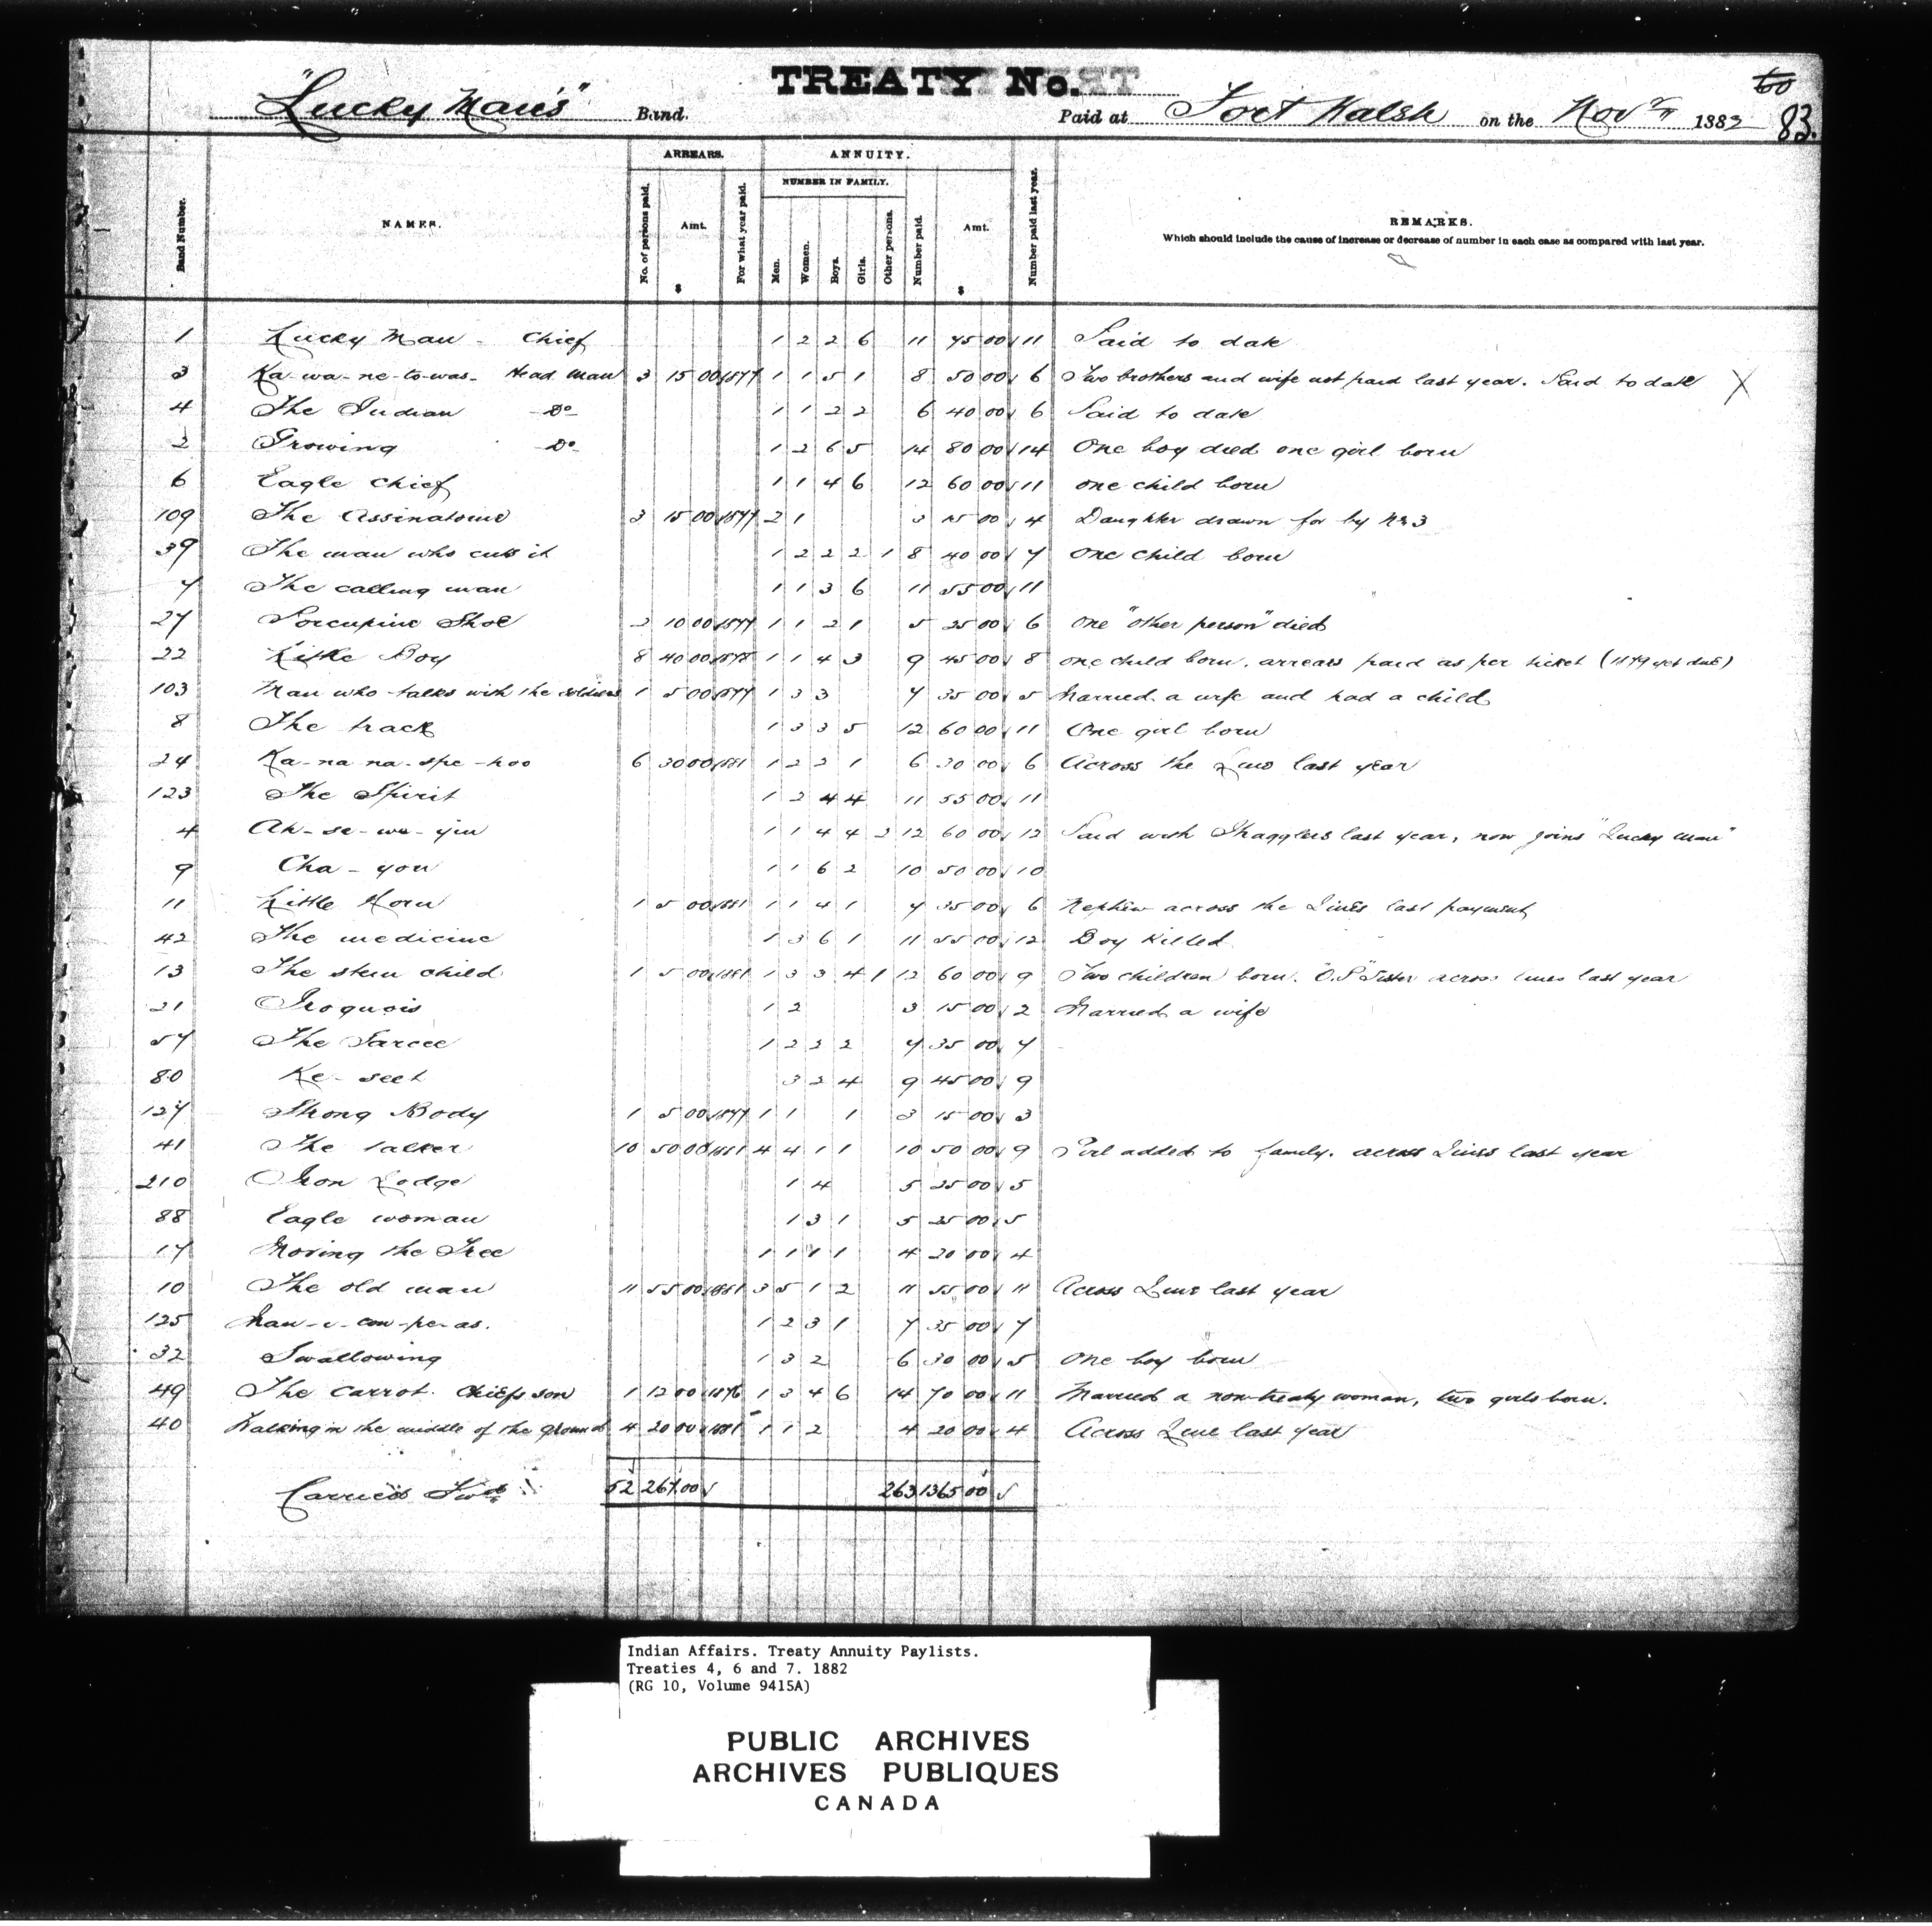 TREATY No.
"Lucky Man's" Band. Paid at Fort Walsh on the Novr 1882
60
83.
ARREARS. ANNUITY.
NUMBER IN FAMILY.
Band Number. NAMES. No. of persons paid. Amt. $ For what year paid. Men. Women. Boys. Girls. Other persons. Number paid. Amt. $ Number paid last year. REMARKS.
Which should include the cause of increase or decrease of number in each case as compared with last year.
1 Lucky Man - Chief 1 2 2 6 11 75 00 11 Paid to date
3 Ka-wa-ne-to-was- Head Man 3 15 00 1877 1 1 5 1 8 50 00 6 Two brothers and wife not paid last year. Paid to date X
4 The Indian Do 1 1 2 2 6 40 00 6 Paid to date
2 Growing Do 1 2 6 5 14 80 00 14 One boy died one girl born
6 Eagle Chief 1 1 4 6 12 60 00 11 one child born
109 The Assinaboine 3 15 00 1877 2 1 3 15 00 4 Daughter drawn for by No 3
39 The man who cuts it 1 2 2 2 1 8 40 00 7 one child born
7 The calling man 1 1 3 6 11 55 00 11
27 Porcupine Shoe 2 10 00 1877 1 1 2 1 5 25 00 6 one "other person" died
22 Little Boy 8 40 00 1878 1 1 4 3 9 45 00 8 one child born. arrears paid as per ticket (1879 yet due)
103 Man who talks with the soldiers 1 5 00 1877 1 3 3 7 35 00 5 Married a wife and had a child
8 The track 1 3 3 5 12 60 00 11 One girl born
24 Ka-na-na-spe-hoo 6 30 00 1881 1 2 2 1 6 30 00 6 Across the Line last year
123 The Spirit 1 2 4 4 11 55 00 11
4 Ah-se-we-yin 1 1 4 4 2 12 60 00 12 Paid with Stragglers last year, now joins "Lucky man"
9 Cha-you 1 1 6 2 10 50 00 10
11 Little Horn 1 5 00 1881 1 1 4 1 7 35 00 6 Nephew across the Lines last payment
42 The medicine 1 3 6 1 11 55 00 12 Boy Killed
13 The stem child 1 5 00 1881 1 3 3 4 1 12 60 00 9 Two children born. "O.P" Sister across lines last year
21 Iroquois 1 2 3 15 00 2 Married a wife
57 The Sarcee 1 2 2 2 7 35 00 7
80 Ke-seet 3 2 4 9 45 00 9
127 Strong Body 1 5 00 1877 1 1 1 3 15 00 3
41 The talker 10 50 00 1881 4 4 1 1 10 50 00 9 Girl added to family. across Lines last year
210 Iron Lodge 1 4 5 25 00 5
88 Eagle woman 1 3 1 5 25 00 5
17 Moving the Tree 1 1 1 1 4 20 00 4
10 The old man 11 55 00 1881 3 5 1 2 11 55 00 11 Across Line last year
125 1 2 3 1 7 35 00 7
32 Swallowing 1 3 2 6 30 00 5 One boy born
49 The Carrot. Chiefs son 1 12 00 1876 1 3 4 6 14 70 00 11 Married a non-treaty woman, two girls born.
40 Walking in the middle of the ground 4 20 00 1881 1 1 2 4 20 00 4 Across Line last year
Carried Fwd 52 267.00 263 1365 00
Indian Affairs. Treaty Annuity Paylists.
Treaties 4, 6 and 7. 1882
(RG 10, Volume 9415A)
PUBLIC ARCHIVES
ARCHIVES PUBLIQUES
CANADA